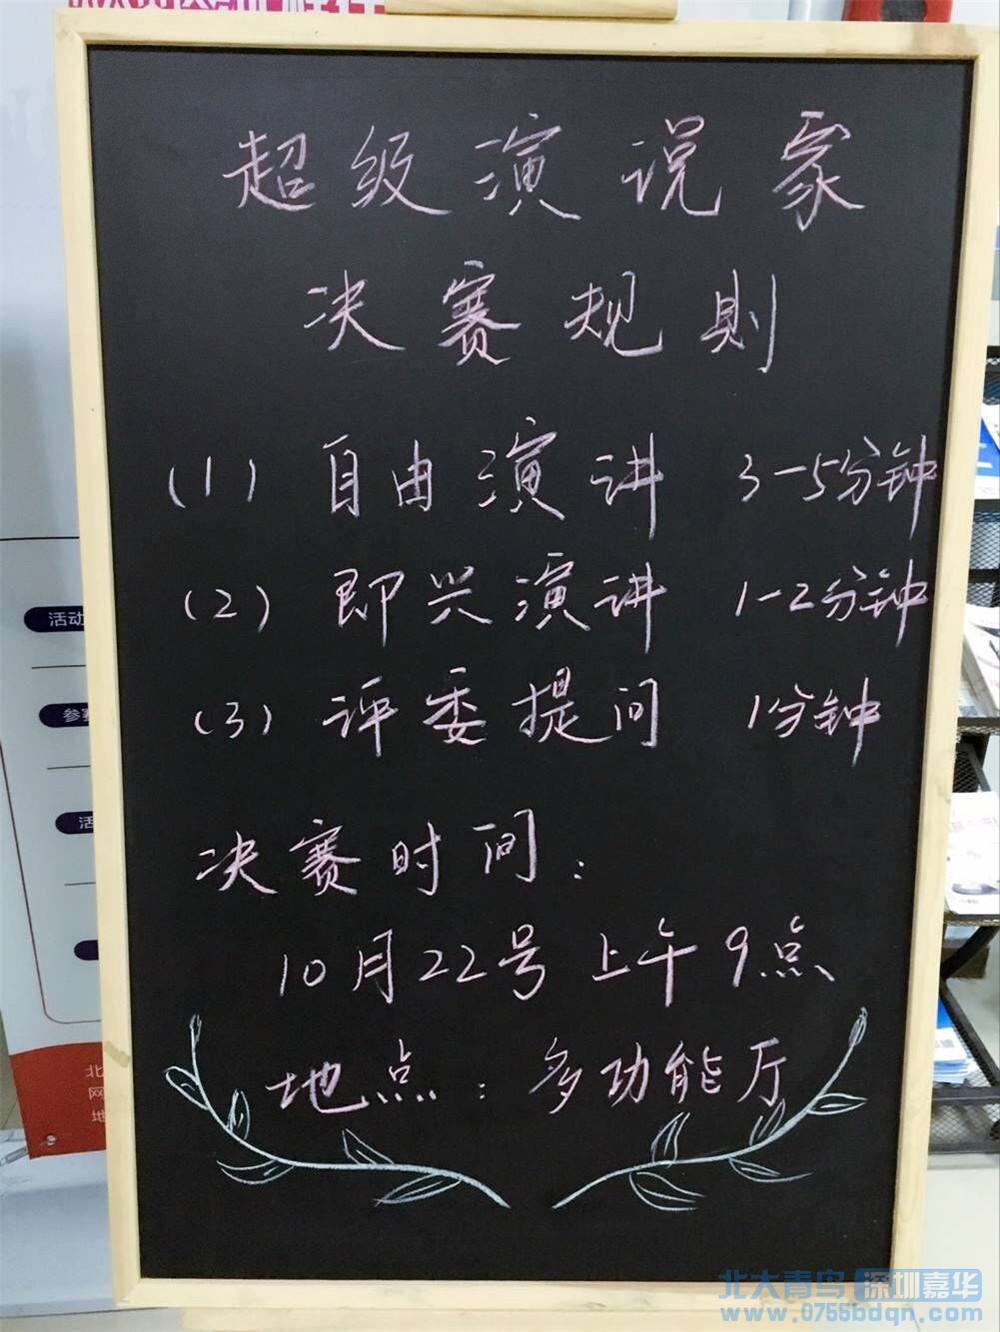 超级演说家
决赛规则
(1) 自由演讲 3-5分钟
(2) 即兴演讲 1-2分钟
(3) 评委提问 1分钟
决赛时间:
10月22号上午9点
地点:多功能厅
活动
参赛
活
北
网
地
北大青鸟 深圳嘉华
www.0755bdqn.com